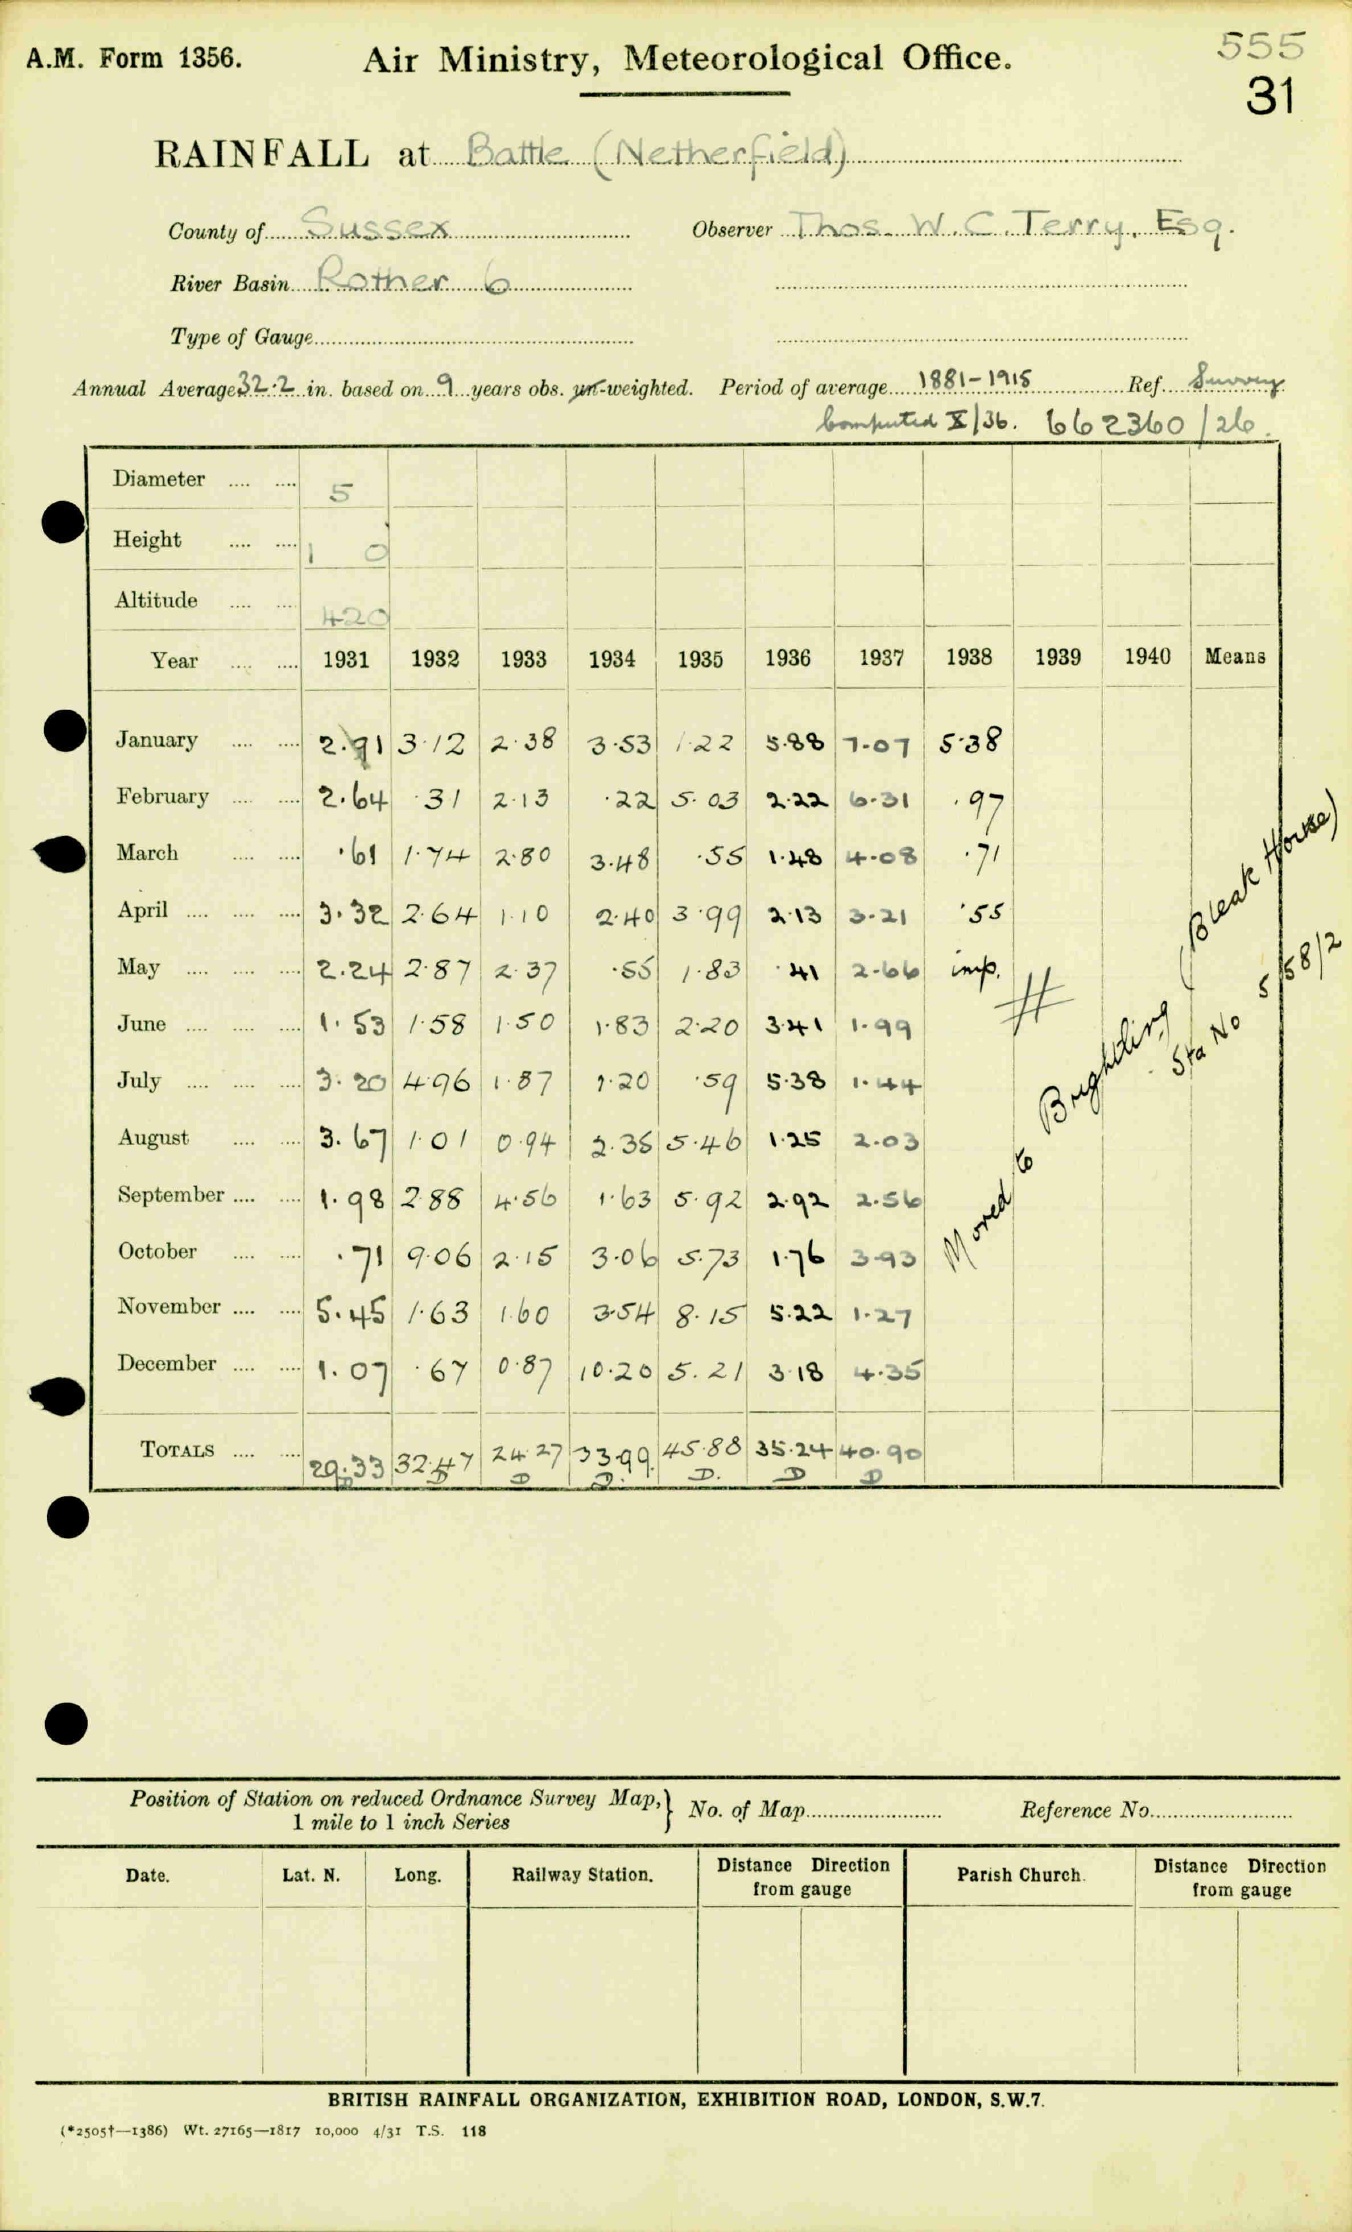 555
A.M. Form 1356. Air Ministry, Meteorological Office.
31
RAINFALL at Battle (Netherfield)
County of Sussex Observer Thos. W. C. Terry, Esq.
River Basin Rother 6
Type of Gauge
Annual Average 32.2 in. based on 9 years obs. un-weighted. Period of average 1881-1915 Ref. Survey
Computed X/36. 662360/26.
Diameter 5
Height 1 0
Altitude 420
Year 1931 1932 1933 1934 1935 1936 1937 1938 1939 1940 Means
January 2.91 3.12 2.38 3.53 1.22 5.88 7.07 5.38
February 2.64 .31 2.13 .22 5.03 2.22 6.31 .97
March .61 1.74 2.80 3.48 .55 1.48 4.08 .71
April 3.32 2.64 1.10 2.40 3.99 2.13 3.21 .55
May 2.24 2.87 2.37 .55 1.83 .41 2.66 imp.
June 1.53 1.58 1.50 1.83 2.20 3.41 1.99
July 3.20 4.96 1.87 1.20 .59 5.38 1.44
August 3.67 1.01 0.94 2.35 5.46 1.25 2.03
September 1.98 2.88 4.56 1.63 5.92 2.92 2.56
October .71 9.06 2.15 3.06 5.73 1.76 3.93
November 5.45 1.63 1.60 3.54 8.15 5.22 1.27
December 1.07 .67 0.87 10.20 5.21 3.18 4.35
TOTALS 29.33 32.47 24.27 33.99 45.88 35.24 40.90
D D D D. D. D D
#
Moved to Brightling (Bleak House)
Sta No 558/2
Position of Station on reduced Ordnance Survey Map, } No. of Map Reference No.
1 mile to 1 inch Series
Date. Lat. N. Long. Railway Station. Distance Direction from gauge Parish Church. Distance Direction from gauge
BRITISH RAINFALL ORGANIZATION, EXHIBITION ROAD, LONDON, S.W.7.
(*2505†—1386) Wt. 27165—1817 10,000 4/31 T.S. 118